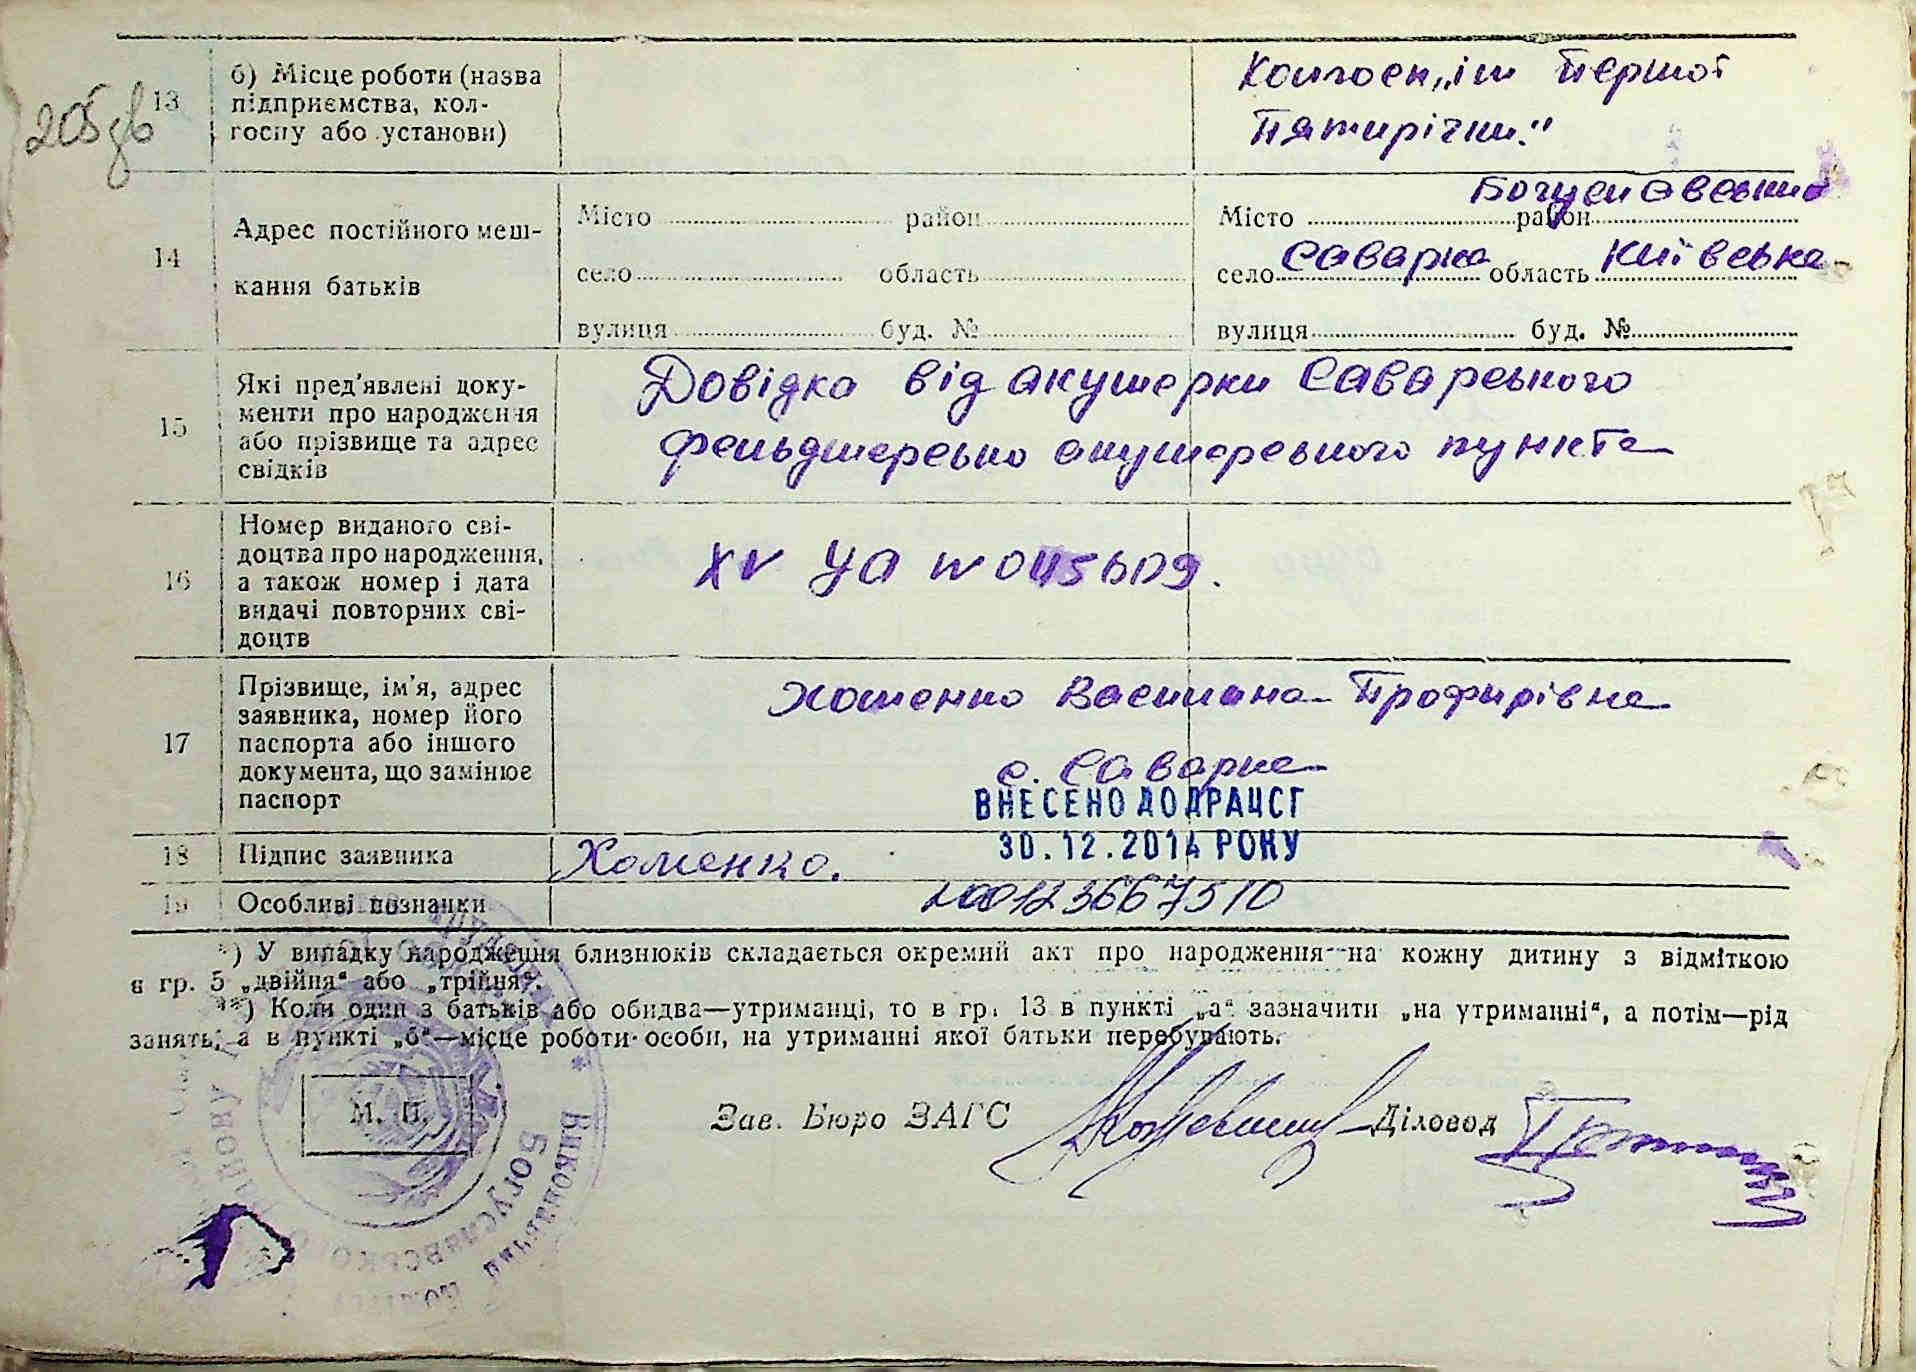 205 зв
13 б) Місце роботи (назва підприємства, колгоспу або установи)
Колгосп „ім Першої
Пятирічки."
14 Адрес постійного мешкання батьків
Місто район
село область
вулиця буд. №
Місто район Богуславський
село Саварка область Київська
вулиця буд. №
15 Які пред'явлені документи про народження або прізвище та адрес свідків
Довідка від акушерки Саварського
фельдшерсько акушерського пункта
16 Номер виданого свідоцтва про народження, а також номер і дата видачі повторних свідоцтв
XV УА №
17 Прізвище, ім'я, адрес заявника, номер його паспорта або іншого документа, що замінює паспорт
Хоменко Василина Профирівна
с. Саварка
ВНЕСЕНО ДО ДРАЦСГ
30.12.2014 РОКУ
18 Підпис заявника Хоменко.
19 Особливі познанки
00123667510
*) У випадку народження близнюків складається окремий акт про народження на кожну дитину з відміткою
в гр. 5 „двійня“ або „трійня“.
**) Коли один з батьків або обидва—утриманці, то в гр. 13 в пункті „а“ зазначити „на утриманні“, а потім—рід
занять, а в пункті „б“—місце роботи особи, на утриманні якої батьки перебувають.
М. П.
Зав. Бюро ЗАГС Діловод
Виконавчий
Богуславсько